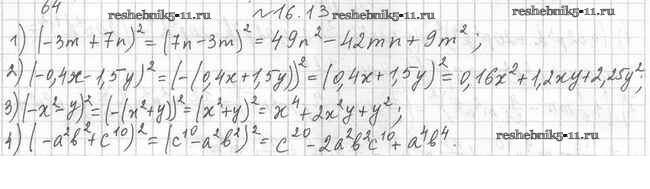 64 №16.13 reshebnik5-11.ru reshebnik5-11.ru
1) (-3m + 7n)² = (7n - 3m)² = 49n² - 42mn + 9m²;
2) (-0,4x - 1,5y)² = (-(0,4x + 1,5y))² = (0,4x + 1,5y)² = 0,16x² + 1,2xy + 2,25y²;
3) (-x² - y)² = (-(x² + y))² = (x² + y)² = x⁴ + 2x²y + y²;
4) (-a²b² + c¹⁰)² = (c¹⁰ - a²b²)² = c²⁰ - 2a²b²c¹⁰ + a⁴b⁴. reshebnik5-11.ru